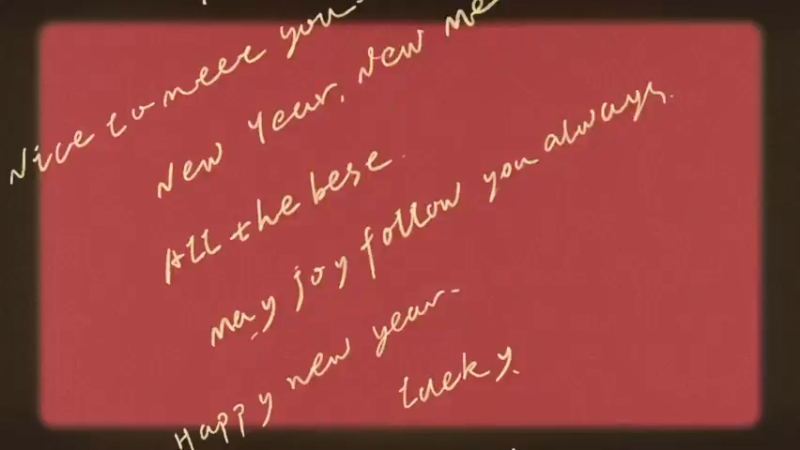 Nice to meet you.
New Year, New me
All the best.
may joy follow you always.
Happy new year.
lucky.